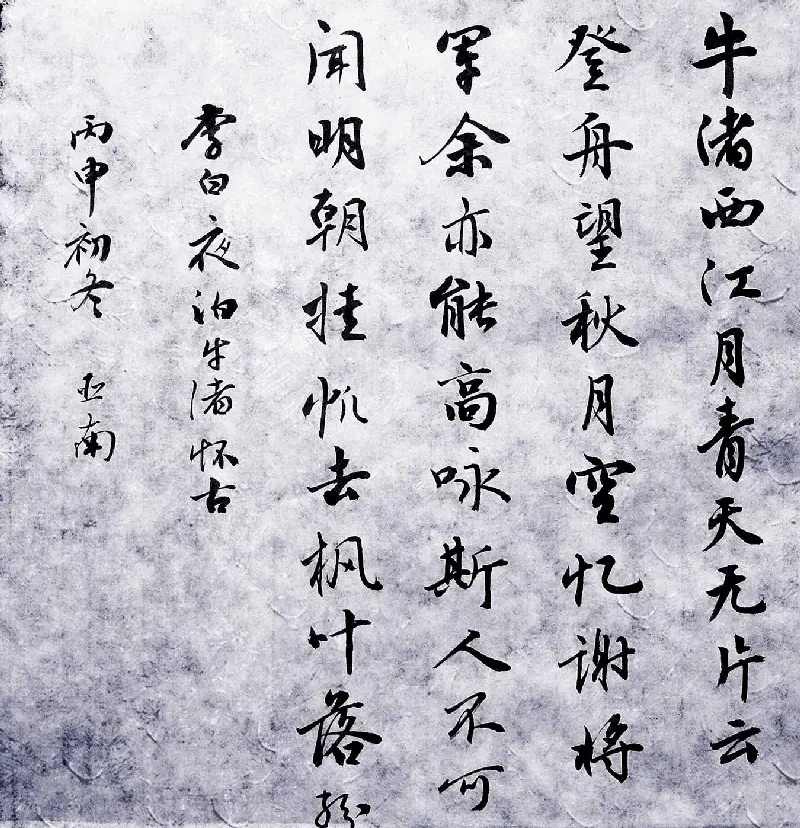 牛渚西江月青天无片云
登舟望秋月空忆谢将
军余亦能高咏斯人不可
闻明朝挂帆去枫叶落纷
李白夜泊牛渚怀古
丙申初冬 亚南